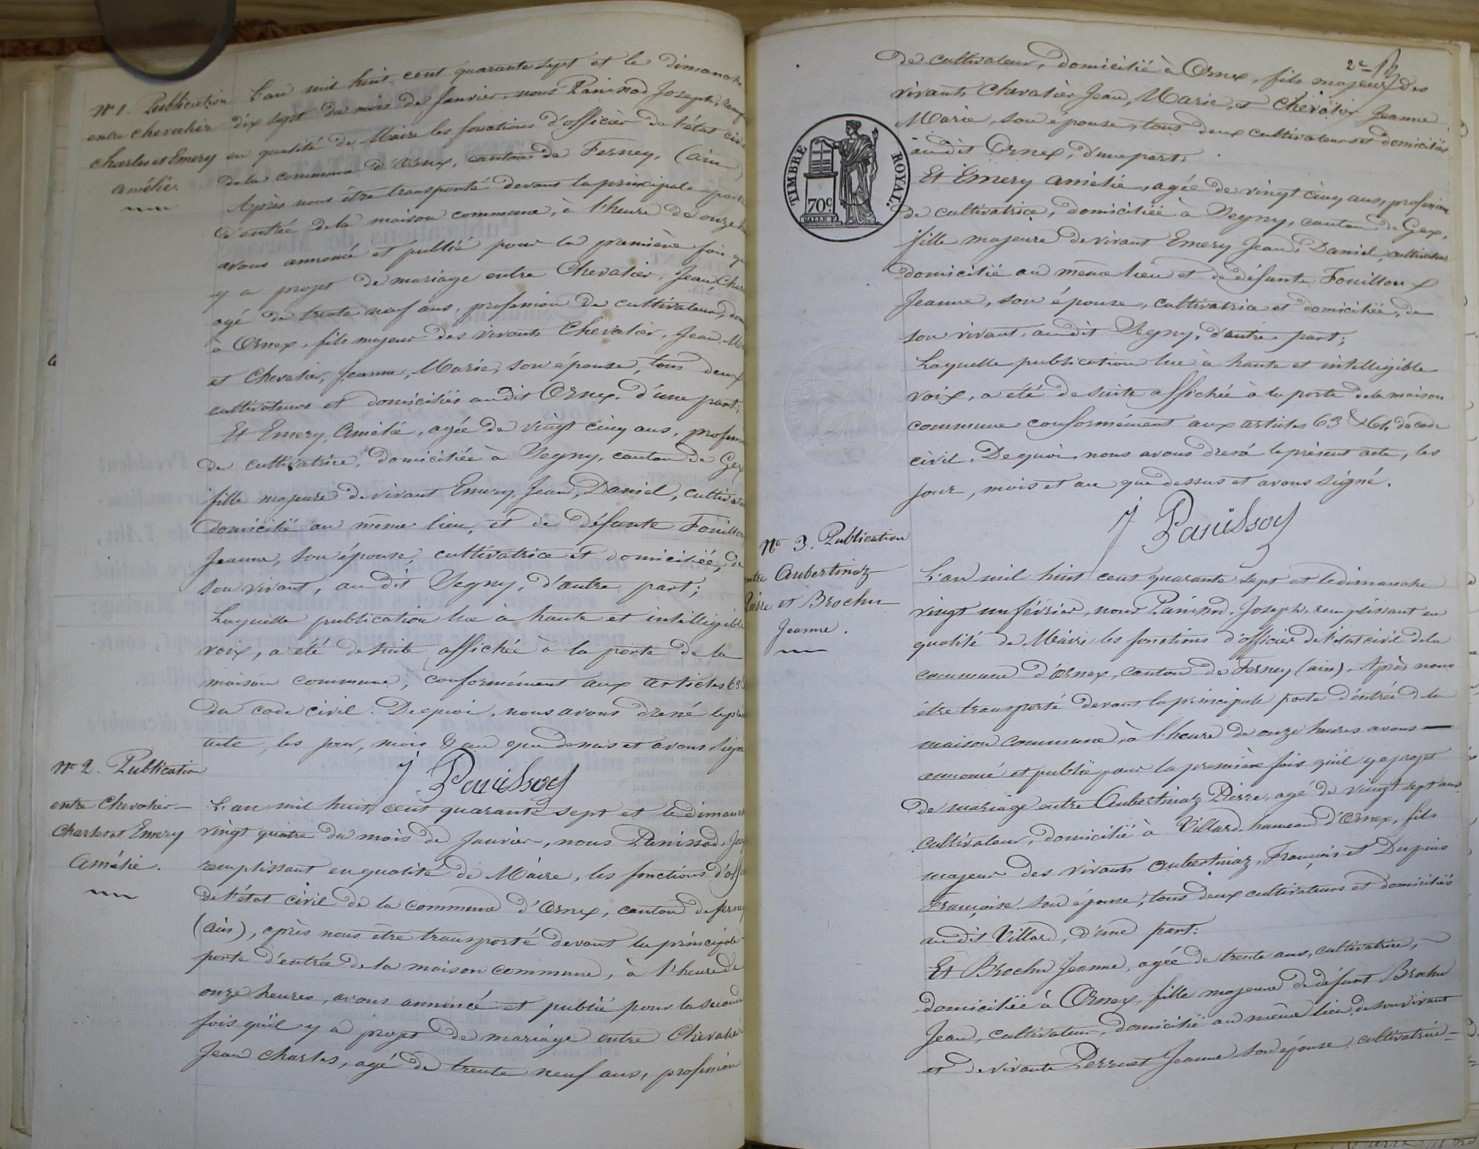 N° 1. Publication
entre Chevalier
Charles et Emery
Amélie.
L'an mil huit cent quarante sept et le dimanche
dix sept du mois de Janvier, nous Panissod Joseph,
en qualité de Maire les fonctions d'officier de l'état civil
de la commune d'Ornex, canton de Ferney, (ain)
Après nous être transporté devant la principale porte
d'entrée de la maison commune, à l'heure de onze
avons annoncé et publié pour la première fois qu'
y a projet de mariage entre Chevalier, Jean Char
agé de trente neuf ans, profession de cultivateur,
à Ornex, fils majeur des vivants Chevalier, Jean, M
et Chevalier, Jeanne, Marie, son épouse, tous deux
cultivateurs et domiciliés audit Ornex, d'une part;
Et Emery, Amélie, agée de vingt cinq ans, profession
de cultivatrice, domiciliée à Segny, canton de Gex
fille majeure de vivant Emery, Jean, Daniel, cultivateur
domicilié au même lieu, et de défunte Fouilloux
Jeanne, son épouse, cultivatrice et domiciliée, de
son vivant, audit Segny, d'autre part;
Laquelle publication lue à haute et intelligible
voix, a été de suite affichée à la porte de la
maison commune, conformément aux articles 63
du code civil. De quoi, nous avons dressé le présent
acte, les jour, mois & an que dessus et avons signé
J Panissod
N° 2. Publication
entre Chevalier
Charles et Emery
Amélie.
L'an mil huit cent quarante sept et le dimanche
vingt quatre du mois de Janvier, nous Panissod, Jos
remplissant en qualité de Maire, les fonctions d'off
de l'état civil de la commune d'Ornex, canton de Ferney
(ain), après nous être transporté devant la principale
porte d'entrée de la maison commune, à l'heure de
onze heures, avons annoncé et publié pour la seconde
fois qu'il y a projet de mariage entre Chevalier
Jean Charles, agé de trente neuf ans, profession
2e
de cultivateur, domicilié à Ornex, fils majeur des
vivants Chevalier Jean, Marie, et Chevalier Jeanne
Marie, son épouse, tous deux cultivateurs et domiciliés
audit Ornex, d'une part.
TIMBRE ROYAL.
70c
Et Emery Amélie, agée de vingt cinq ans, profession
de cultivatrice, domiciliée à Segny, canton de Gex,
fille majeure de vivant Emery Jean, Daniel, cultivateur
domicilié au même lieu et de défunte Fouilloux
Jeanne, son épouse, cultivatrice et domiciliée, de
son vivant, audit Segny, d'autre part;
Laquelle publication lue à haute et intelligible
voix, a été de suite affichée à la porte de la maison
commune conformément aux articles 63 & 64 du code
civil. De quoi, nous avons dressé le présent acte, les
jour, mois et an que dessus et avons signé.
J Panissod
N° 3. Publication
entre Aubertinaz
Pierre et Brochu
Jeanne.
L'an mil huit cent quarante sept et le dimanche
vingt un février, nous Panissod, Joseph, remplissant en
qualité de Maire les fonctions d'officier de l'état civil de la
commune d'Ornex, canton de Ferney (ain). Après nous
être transporté devant la principale porte d'entrée de la
maison commune, à l'heure de onze heures, avons
annoncé et publié pour la première fois qu'il y a projet
de mariage entre Aubertinaz Pierre, agé de vingt sept ans
cultivateur, domicilié à Villard hameau d'Ornex, fils
majeur des vivants Aubertinaz, François et Dupuis
Françoise son épouse, tous deux cultivateurs et domiciliés
audit Villard, d'une part:
Et Brochu Jeanne, agée de trente ans, cultivatrice,
domiciliée à Ornex, fille majeure de défunt Brochu
Jean, cultivateur, domicilié au même lieu, de son vivant
et de vivante Perreat Jeanne son épouse cultivatrice